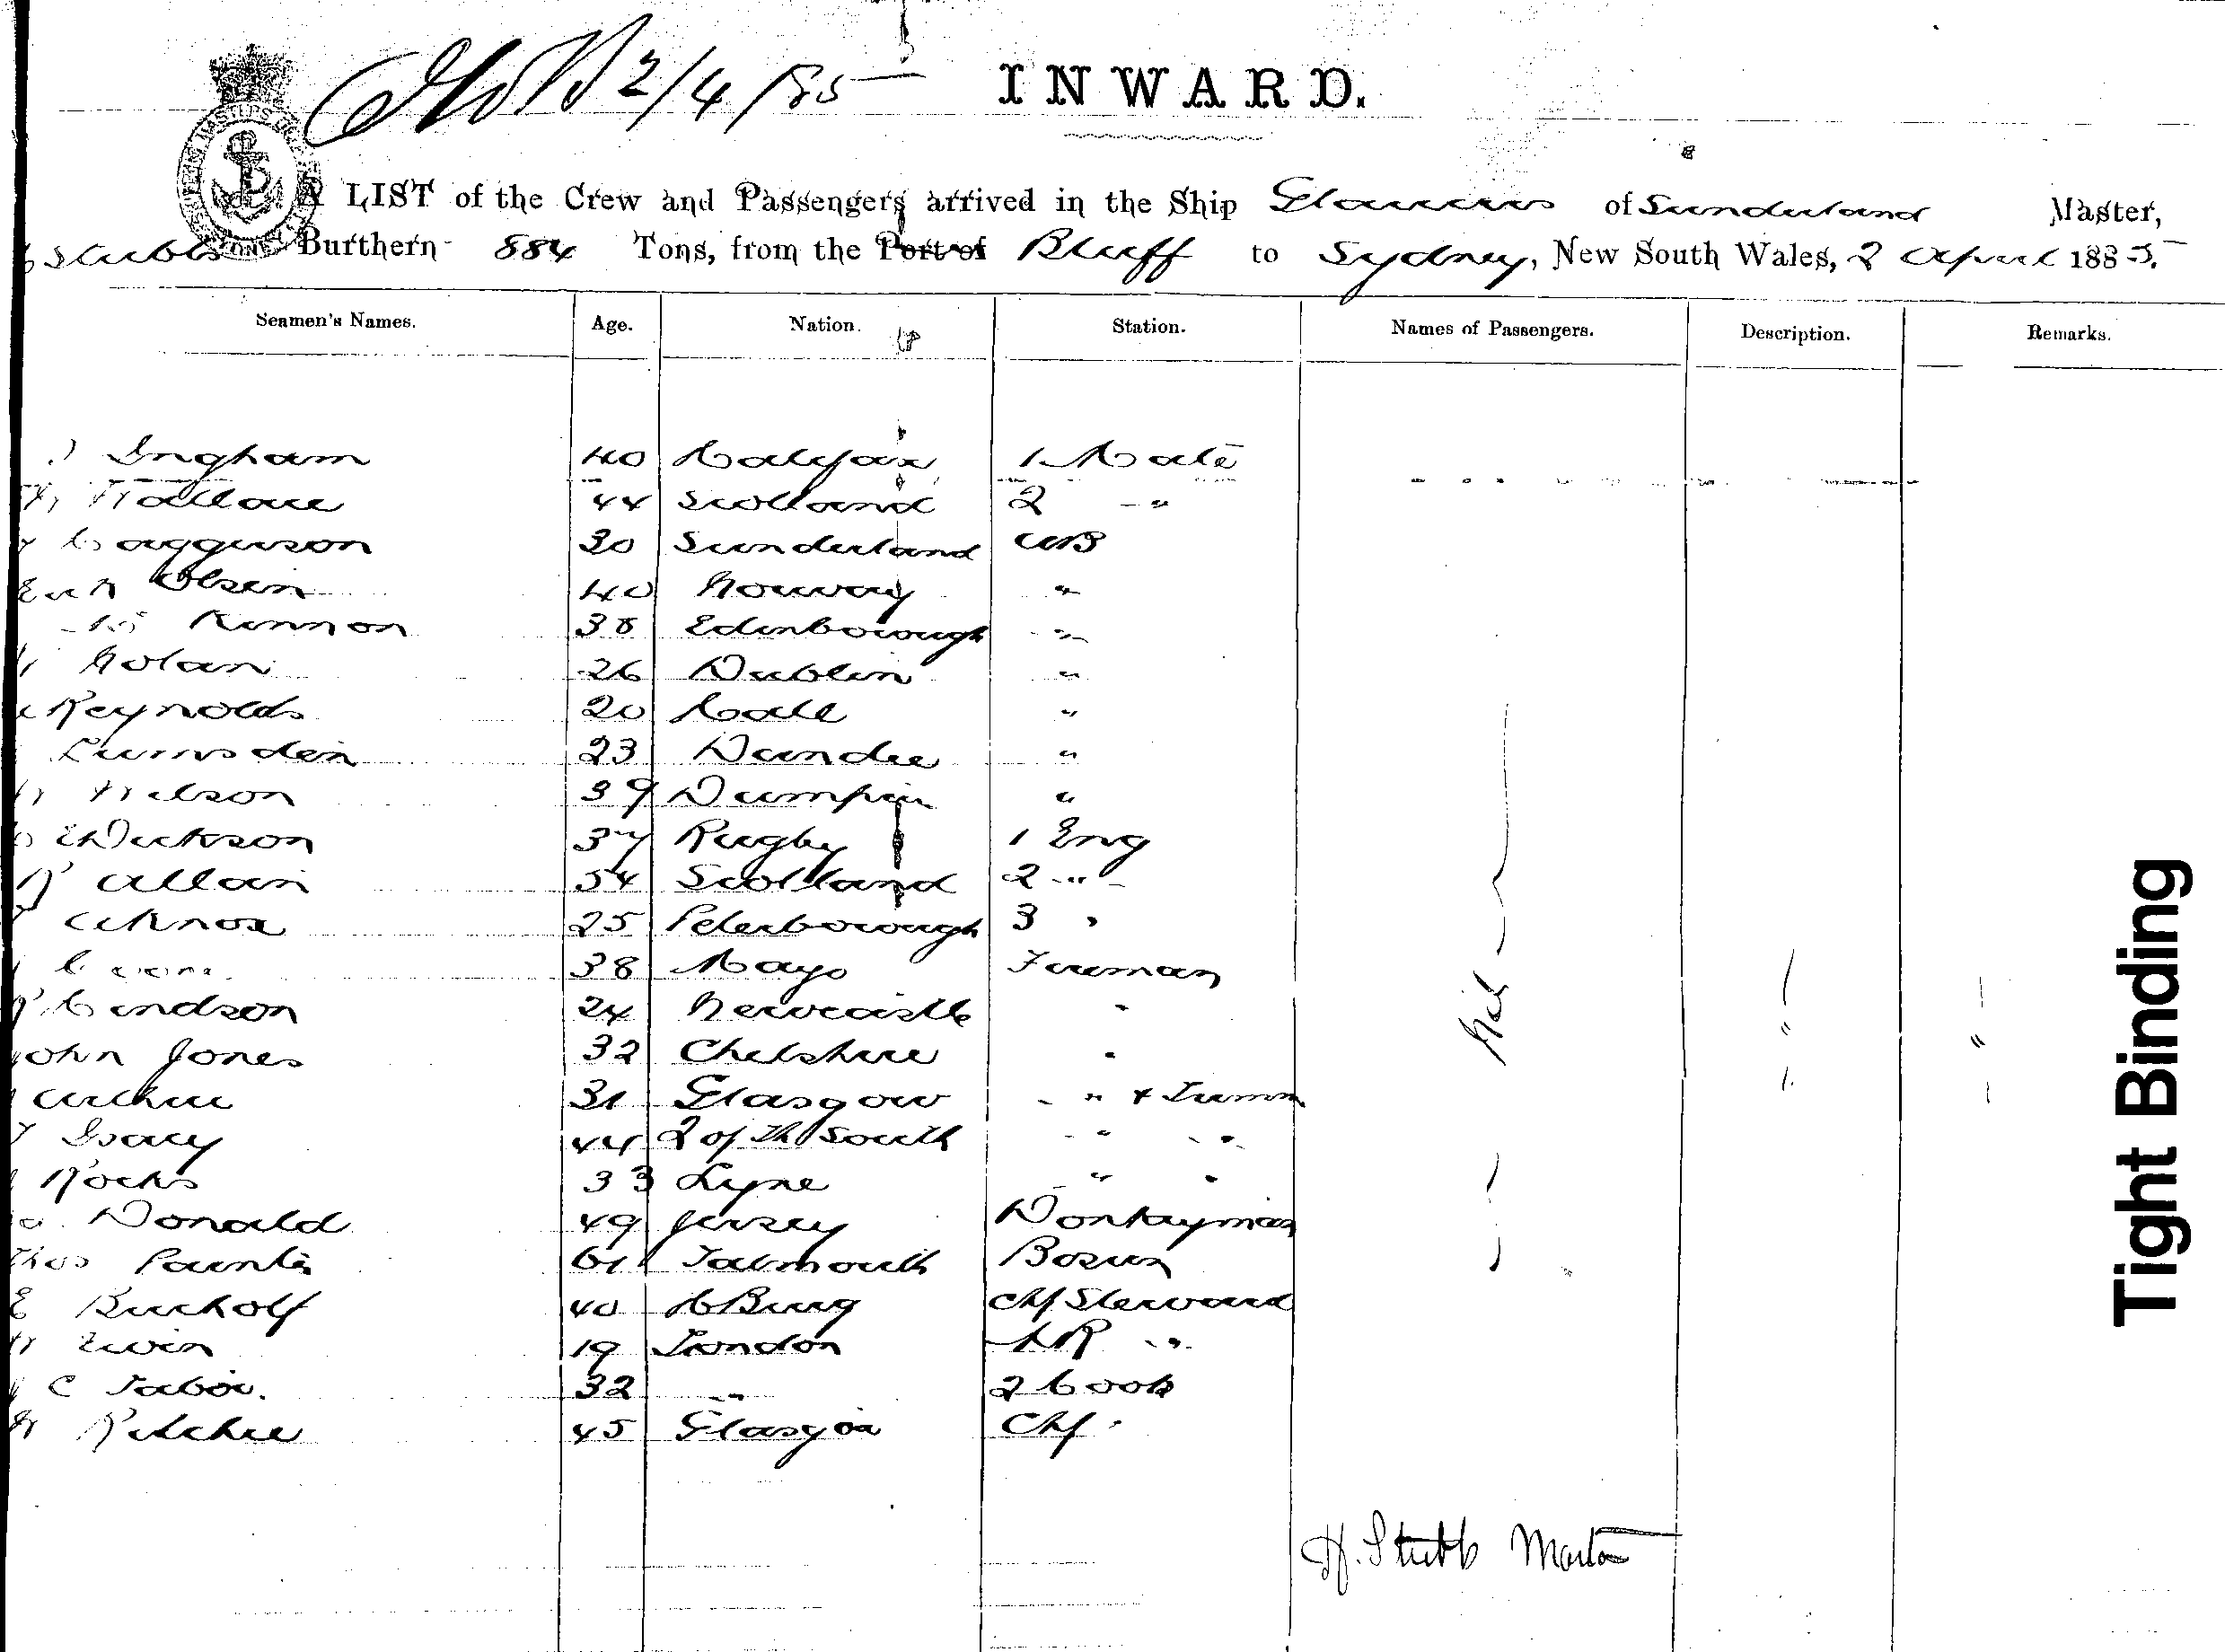 2/4/85
INWARD.
A LIST of the Crew and Passengers arrived in the Ship Glaucus of Sunderland Master,
Stubbs Burthern 884 Tons, from the Port of Bluff to Sydney, New South Wales, 2 April 1885.
Seamen's Names. Age. Nation. Station. Names of Passengers. Description. Remarks.
Ingham 40 Halifax 1 Mate
Wallace 44 Scotland 2 "
30 Sunderland AB
Olsen 40 Norway "
Kinnon 38 Edinborough "
Nolan 26 Dublin "
Reynolds 20 "
Lumsden 23 Dundee "
Wilson 39 "
Dickson 37 Rugby 1 Eng
Allan 54 Scotland 2 "
25 Peterborough 3 "
38 Mayo Fireman
24 Newcastle "
John Jones 32 Chelshire " Nil " "
Archer 31 Glasgow " & Trimm
44 "  "
33 Tyne " "
Donald 49 Jersey Donkeyman
Thos 61 Falmouth Bosun
E 40 HBurg Chf Steward
19 London "
C Tabor. 32 " 2 Cook
Ritchie 45 Glasgow Chf "
H. Stubb Master
Tight Binding